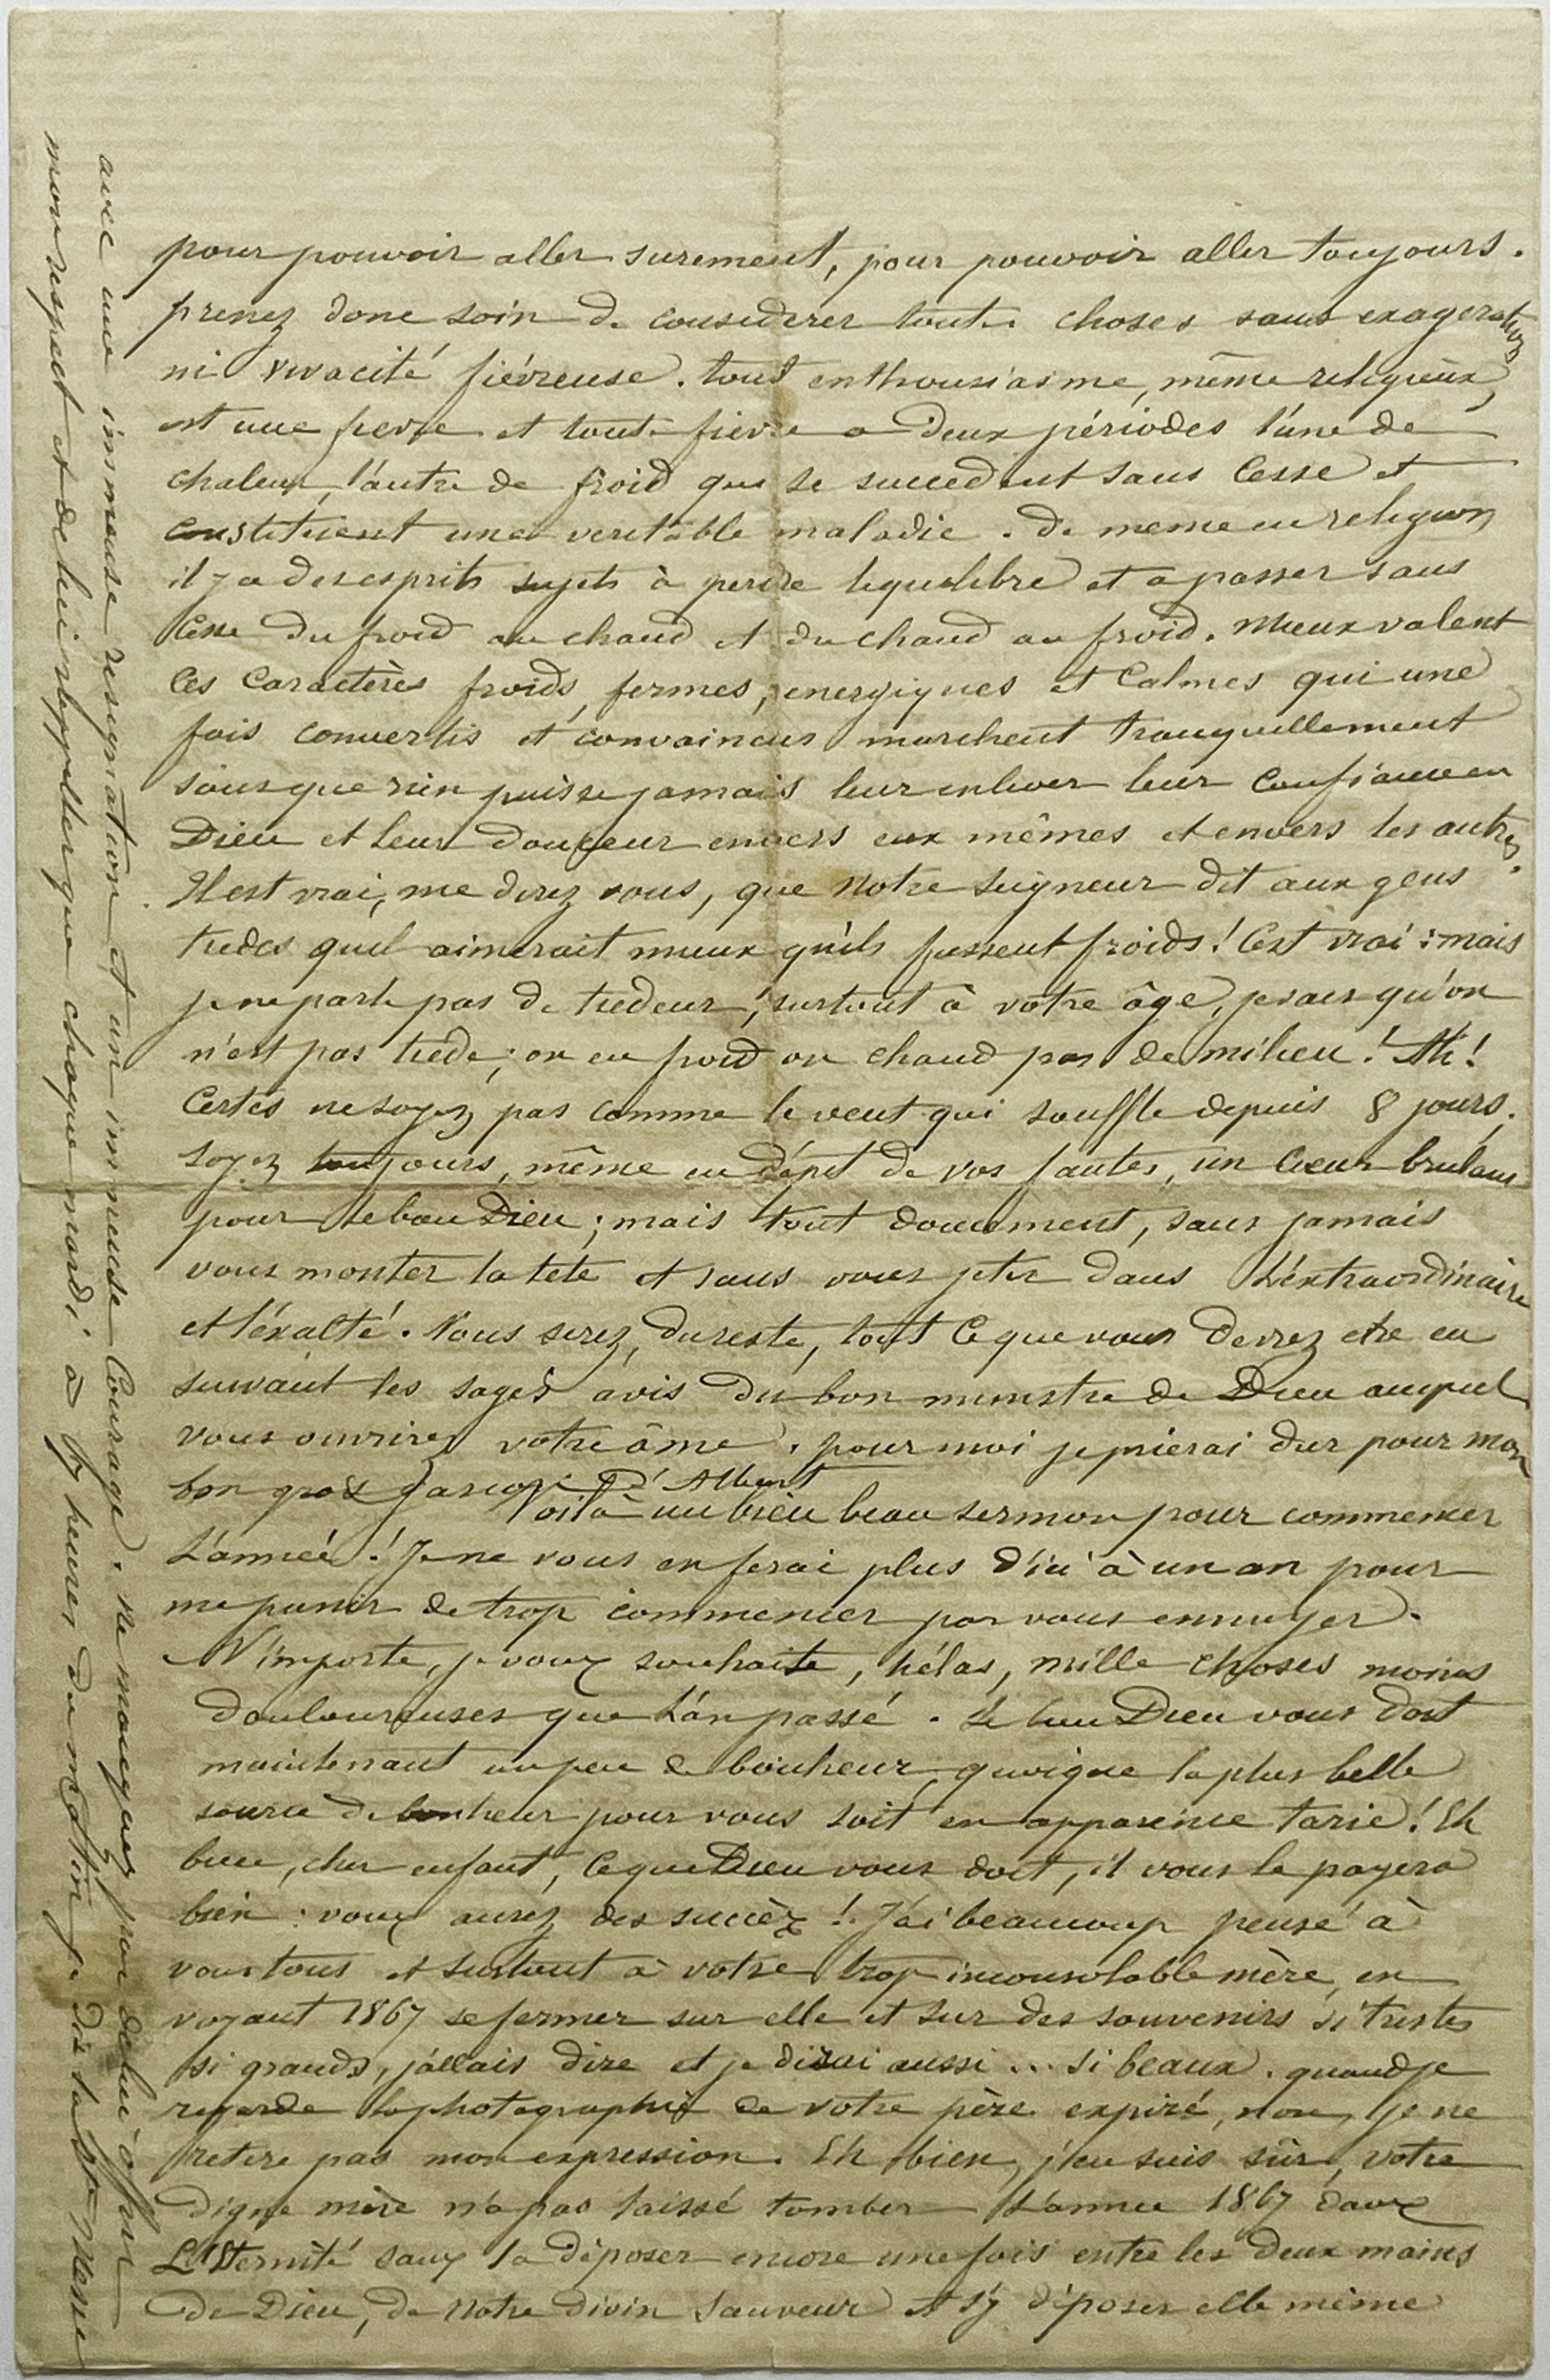 pour pouvoir aller surement, pour pouvoir aller toujours.
prenez donc soin de considerer toutes choses sans exageration
ni vivacité fiévreuse. tout enthousiasme, même religieux,
est une fievre et toute fievre a deux périodes l'une de
chaleur, l'autre de froid qui se succedent sans cesse et
constituent une veritable maladie. de meme en religion
il y a des esprits sujets à perdre lequilibre et a passer sans
cesse du froid au chaud et du chaud au froid. Mieux valent
ces caractères froids, fermes, energiques et calmes qui une
fois convertis et convaincus marchent tranquillement
sans que rien puisse jamais leur enlever leur confiance en
Dieu et leur douceur envers eux mêmes et envers les autres.
Il est vrai, me direz vous, que Notre Seigneur dit aux gens
tiedes quil aimerait mieux qu'ils fussent froids! C'est vrai: mais
je ne parle pas de tiedeur; surtout à votre âge, je sais qu'on
n'est pas tiede; on en froid ou chaud pas de milieu! Ah!
Certes ne soyez pas comme le vent qui souffle depuis 8 jours;
soyez toujours, même en dépit de vos fautes, un coeur brulant
pour le bon Dieu; mais tout doucement, sans jamais
vous monter la tete et sans vous jeter dans L'éxtraordinaire
et l'éxalté. Vous serez, du reste, tout ce que vous devrez etre en
suivant les sages avis du bon ministre de Dieu auquel
vous ouvrirez votre âme. pour moi je prierai dur pour mon
bon gros garçon D'Albert
Voilà un bien beau sermon pour commencer
L'année! Je ne vous en ferai plus d'ici à un an pour
me punir de trop commencer par vous ennuyer.
N'importe, je vous souhaite, hélas, mille choses moins
douloureuses que L'an passé. Le bon Dieu vous doit
maintenant un peu de bonheur, quoique la plus belle
source de bonheur pour vous soit en apparence tarie! Eh
bien, cher enfant, ce que Dieu vous doit, il vous le payera
bien: vous aurez des succèz! J'ai beaucoup pensé à
vous tous et surtout à votre trop inconsolable mère, en
voyant 1867 se fermer sur elle et sur des souvenirs si tristes
si grands, j'allais dire et je dirai aussi... si beaux. quand je
regarde la photographie de votre père expiré, non, je ne
retire pas mon expression. Eh bien, j'en suis sûr, votre
digne mère n'a pas laissé tomber L'année 1867 dans
L'Eternité sans la déposer encore une fois entre les deux mains
de Dieu, de Notre divin Sauveur et s'y déposer elle même
avec une immense resignation et un immense Courage. Ne manquez pas de lui offrir
mon respect et de lui rappeller que chaque mardi à heures du matin, je dis la Ste Messe